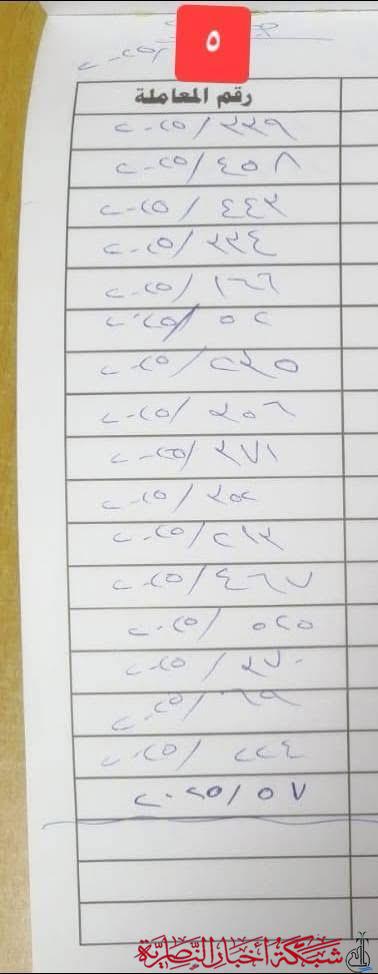 ٥
رقم المعاملة
٢٠٢٥/٣٣٩
٢٠٢٥/٤٥٨
٢٠٢٥/٤٤٣
٢٠٢٥/٣٣٤
٢٠٢٥/١٦٦
٢٠٢٥/٥٢
٢٠٢٥/٢٣٥
٢٠٢٥/٣٥٦
٢٠٢٥/٣٧١
٢٠٢٥/٣٥٢
٢٠٢٥/٢١٣
٢٠٢٥/٤٦٧
٢٠٢٥/٥٢٥
٢٠٢٥/٣٧٠
٢٠٢٥/٦٩
٢٠٢٥/٢٢٤
٢٠٢٥/٥٧
شبكة أخبار الناصرية